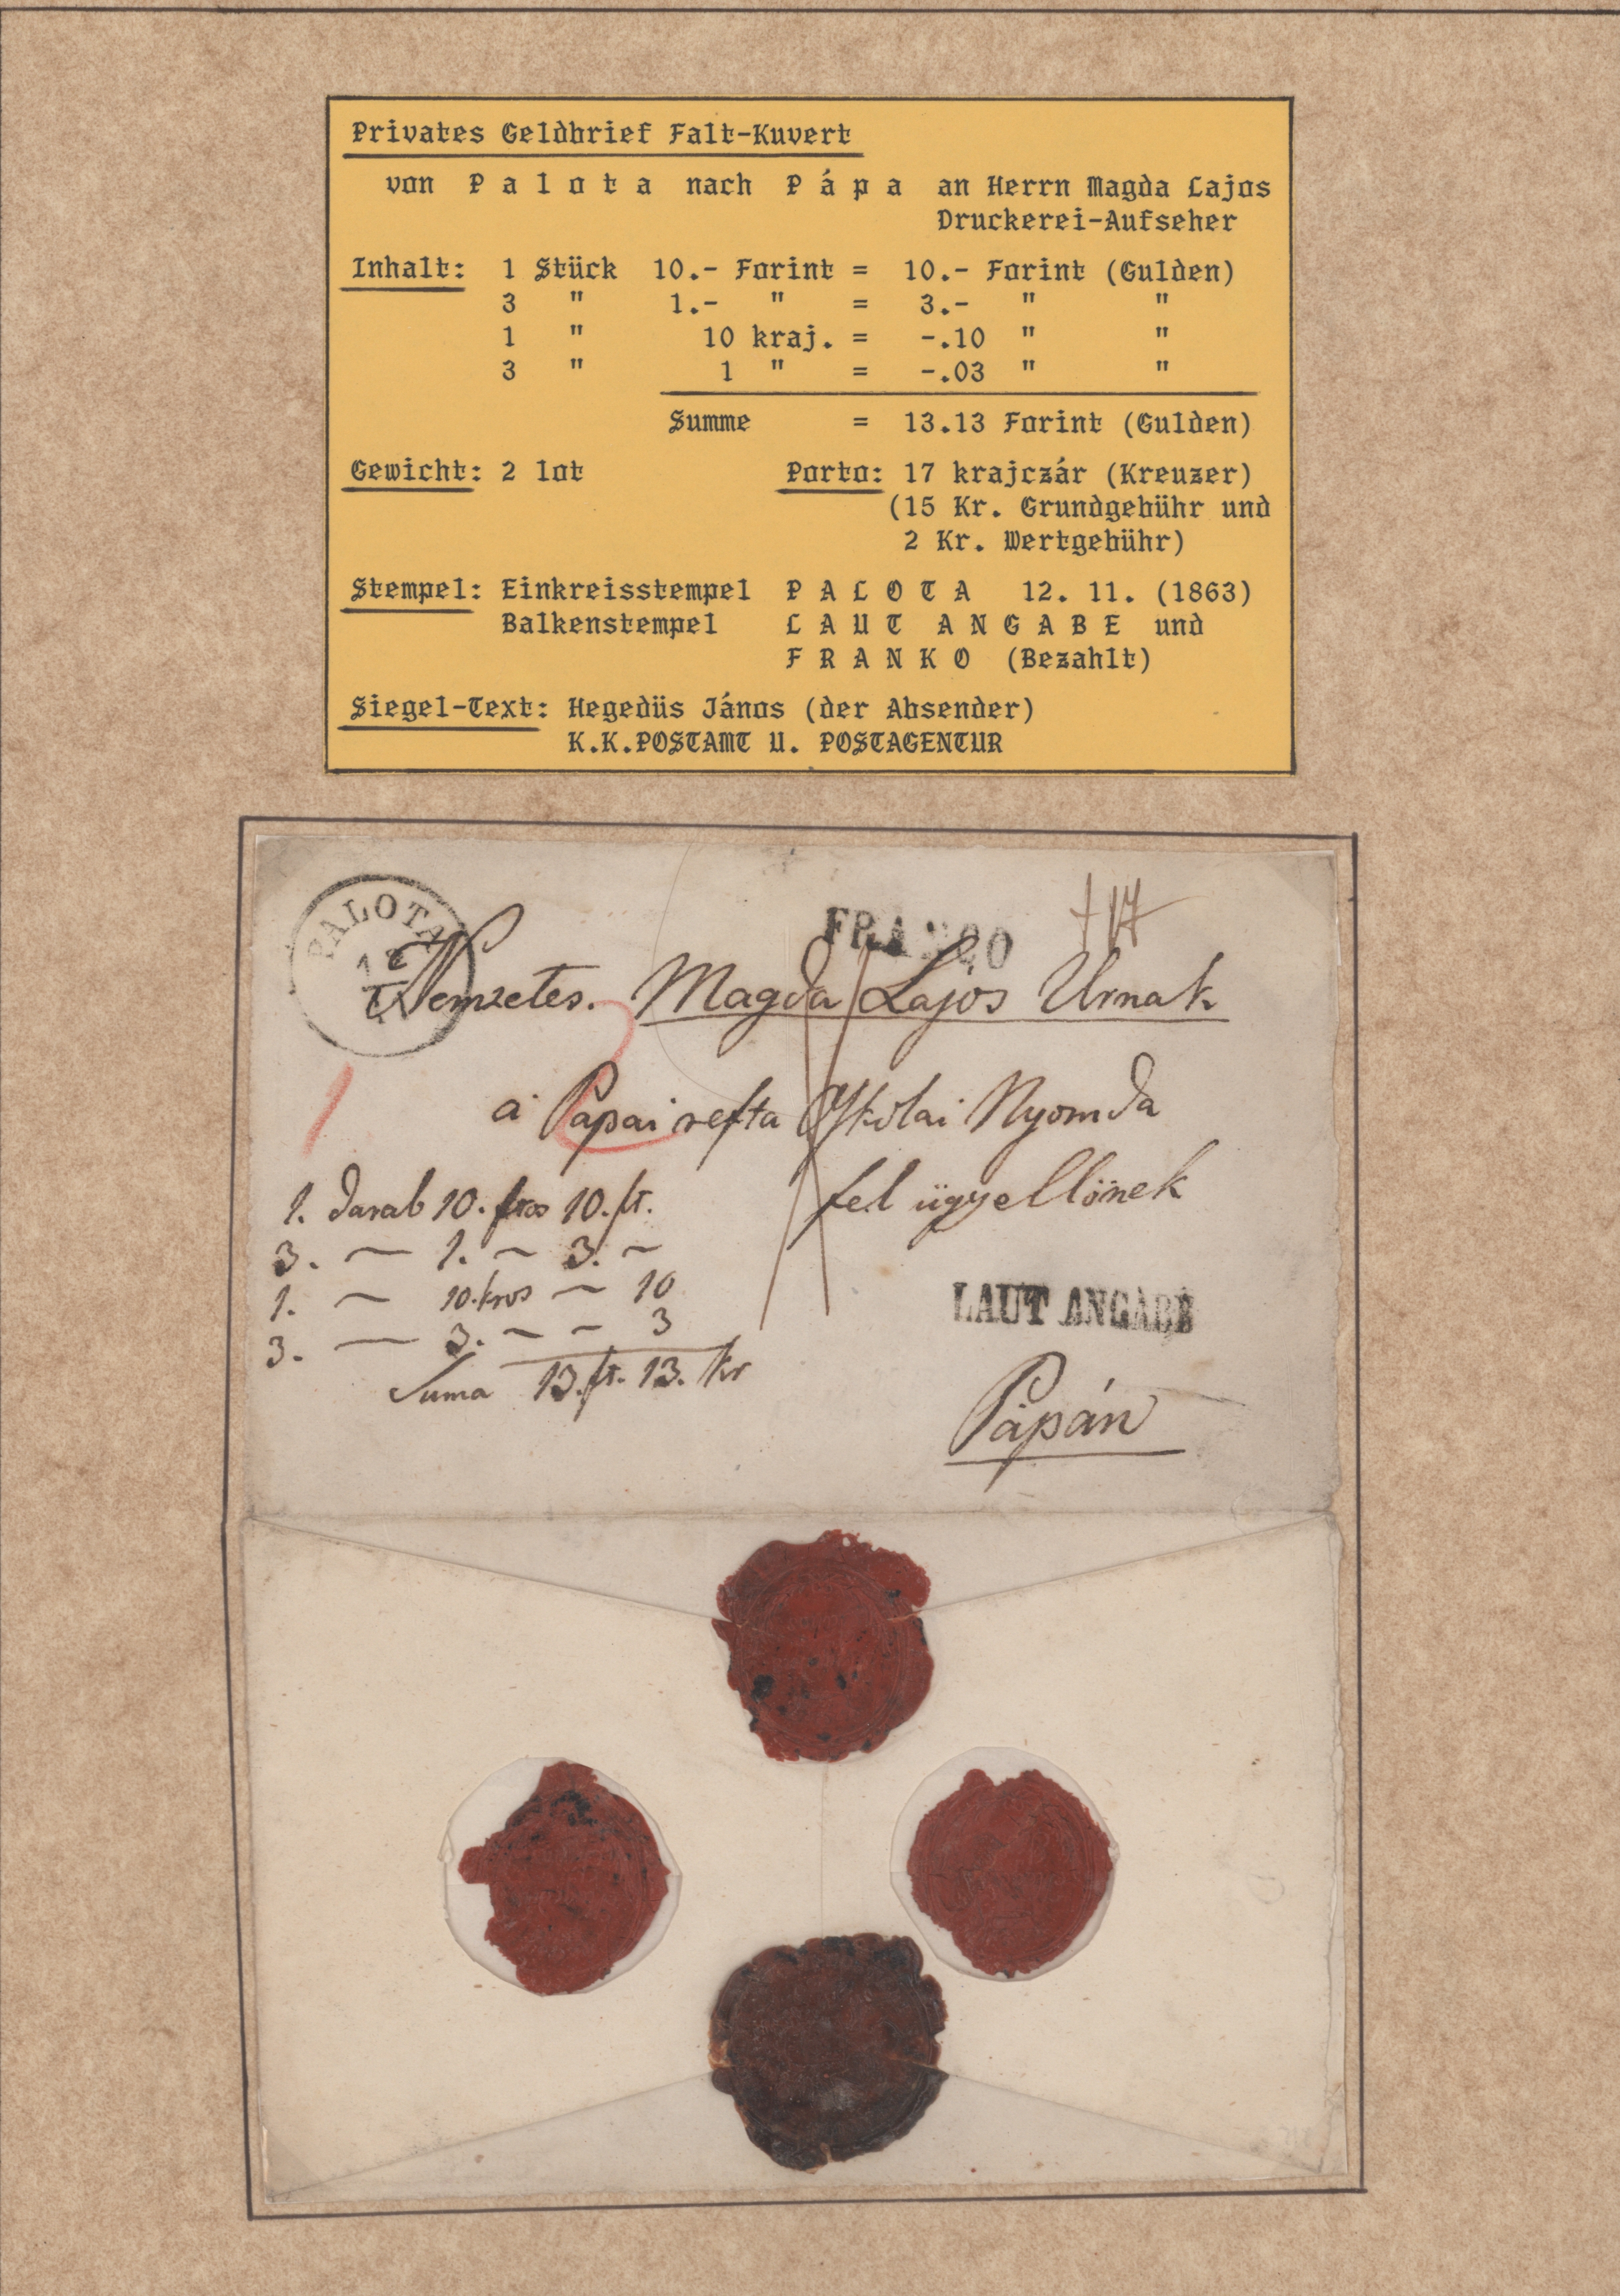 Privates Geldbrief Falt-Kuvert
von P a l o t a nach P á p a an Herrn Magda Lajos
Druckerei-Aufseher
Inhalt: 1 Stück 10.- Forint = 10.- Forint (Gulden)
3 " 1.- " = 3.- " "
1 " 10 kraj. = -.10 " "
3 " 1 " = -.03 " "
Summe = 13.13 Forint (Gulden)
Gewicht: 2 lot Porto: 17 krajczár (Kreuzer)
(15 Kr. Grundgebühr und
2 Kr. Wertgebühr)
Stempel: Einkreisstempel P A L O T A 12. 11. (1863)
Balkenstempel L A U T A N G A B E und
F R A N K O (Bezahlt)
Siegel-Text: Hegedüs János (der Absender)
K.K.POSTAMT U. POSTAGENTUR
PALOTA
FRANCO
17
Nemzetes. Magda Lajos Urnak
a Pápai refta Iskolai Nyomda
fel ügyellönek
1. darab 10. ftos 10. ft.
3. — 1. ~ 3. ~
1. ~ 10. kros ~ 10
3. — 3. ~ ~ 3
Suma 13. ft. 13. kr
LAUT ANGABE
Pápán